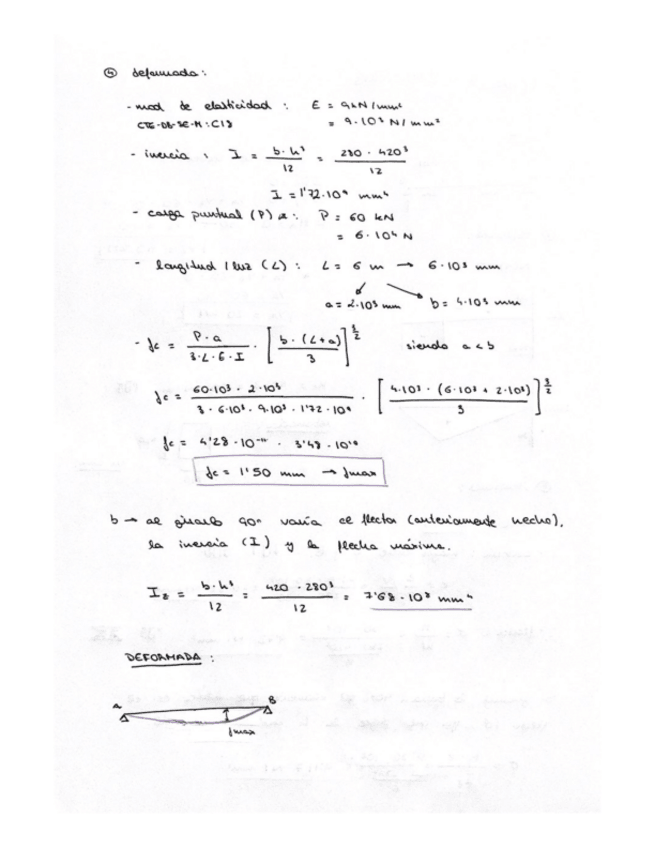 ④ deformada:
- mod de elasticidad : E = 9kN/mm²
CTE-DB-SE-M: C18 = 9·10³ N/mm²
- inercia : I = b·h³/12 = 280 · 420³/12
I = 1'72·10⁹ mm⁴
- carga puntual (P) : P = 60 kN
= 6·10⁴ N
- longitud / luz (L) : L = 6 m → 6·10³ mm
a = 2·10³ mm b = 4·10³ mm
- fc = P·a/3·L·E·I · [b·(L+a)/3]^3/2 siendo a < b
fc = 60·10³ · 2·10³/3 · 6·10³ · 9·10³ · 1'72·10⁹ · [4·10³ · (6·10³ + 2·10³)/3]^3/2
fc = 4'28·10⁻¹⁰ · 3'48·10¹⁰
fc = 1'50 mm → fmax
b → al girarlo 90° varía el flector (anteriormente hecho),
la inercia (I) y la flecha máxima.
I₂ = b·h³/12 = 420 · 280³/12 = 7'68·10⁸ mm⁴
DEFORMADA :
A B
fmax